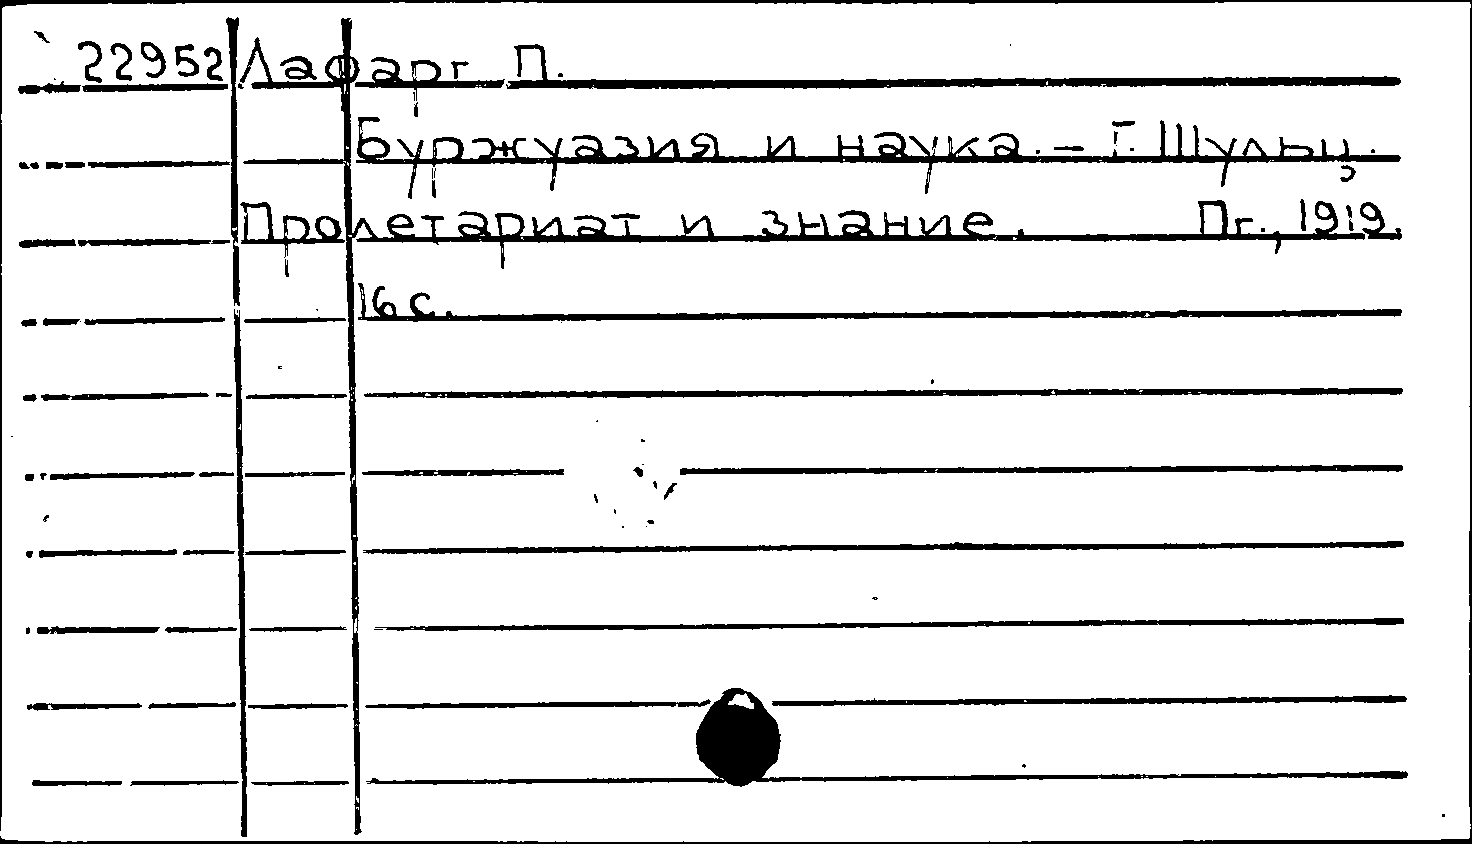 22952 Лафарг П.
Буржуазия и наука. - Г. Шульц.
Пролетариат и знание. Пг., 1919.
16 с.